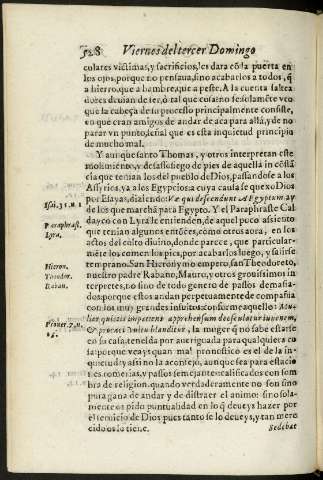 528 Viernes del tercer Domingo
culares victimas, y sacrificios, les dara cõ la puerta en
los ojos, porque no pensaua, sino acabarlos a todos, q̃
a hierro, que a hambre, que a peste. A la cuenta saltea
dores deuian de ser, ò tal que cosa
que la cabeça de su processo principalmente consiste,
en que eran amigos de andar de aca para allá, y de no
parar vn punto, señal que es esta inquietud principio
de mucho mal.
Y aunque santo Thomas, y otros interpretan este
mouimiento, y desassosiego de pies de aquella incõstã
cia que tenian los del pueblo de Dios, passandose a los
Assyrios, ya a los Egypcios: a cuya causa se quexo Dios
Isai. 31. n. 1 por Esayas, diziendo: Væ qui descendunt in Egyptum, ay
de los que marchã para Egypto. Y el Paraphraste Cal
Paraphrast. dayco con Lyra le entienden, de aquel poco assiento
Lyra. que tenian algunos entõces, como otros aora, en los
actos del culto diuino, donde parece, que particular-
mẽte los comen los pies, por acabarlos luego, y salirse
Hieron. temprano. San Hieronymo empero, san Theodoreto,
Theodor. nuestro padre Rabano, Mauro, y otros grauissimos in
Raban. terpretes, no sino de todo genero de passos demasia-
dos, porque estos andan perpetuamente de compañia
con los muy grandes insultos: conforme aquello:
quietis impatiens apprehensum deosculatur iuuenem,
Prouer. 7. n. & procaci vultu blanditur, la muger q̃ no sabe estarse
en su casa, tenelda por auerigüada para qualquiera co
sa: porque veays quan mal pronostico es el de la in-
quietud: y assi no la aconsejo, aunque sea para estacio
nes, romerias, y passos semejantes calificados con som
bra de religion, quando verdaderamente no son sino
pura gana de andar, y de distraer el animo: sino sola-
mente os pido puntualidad en lo q̃ deueys hazer por
el seruicio de Dios, pues tanto se lo deueys, y tan mere
cido os lo tiene. Sedebat